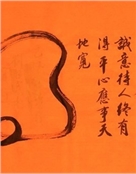 誠意待人終有
得平心應事天
地寬